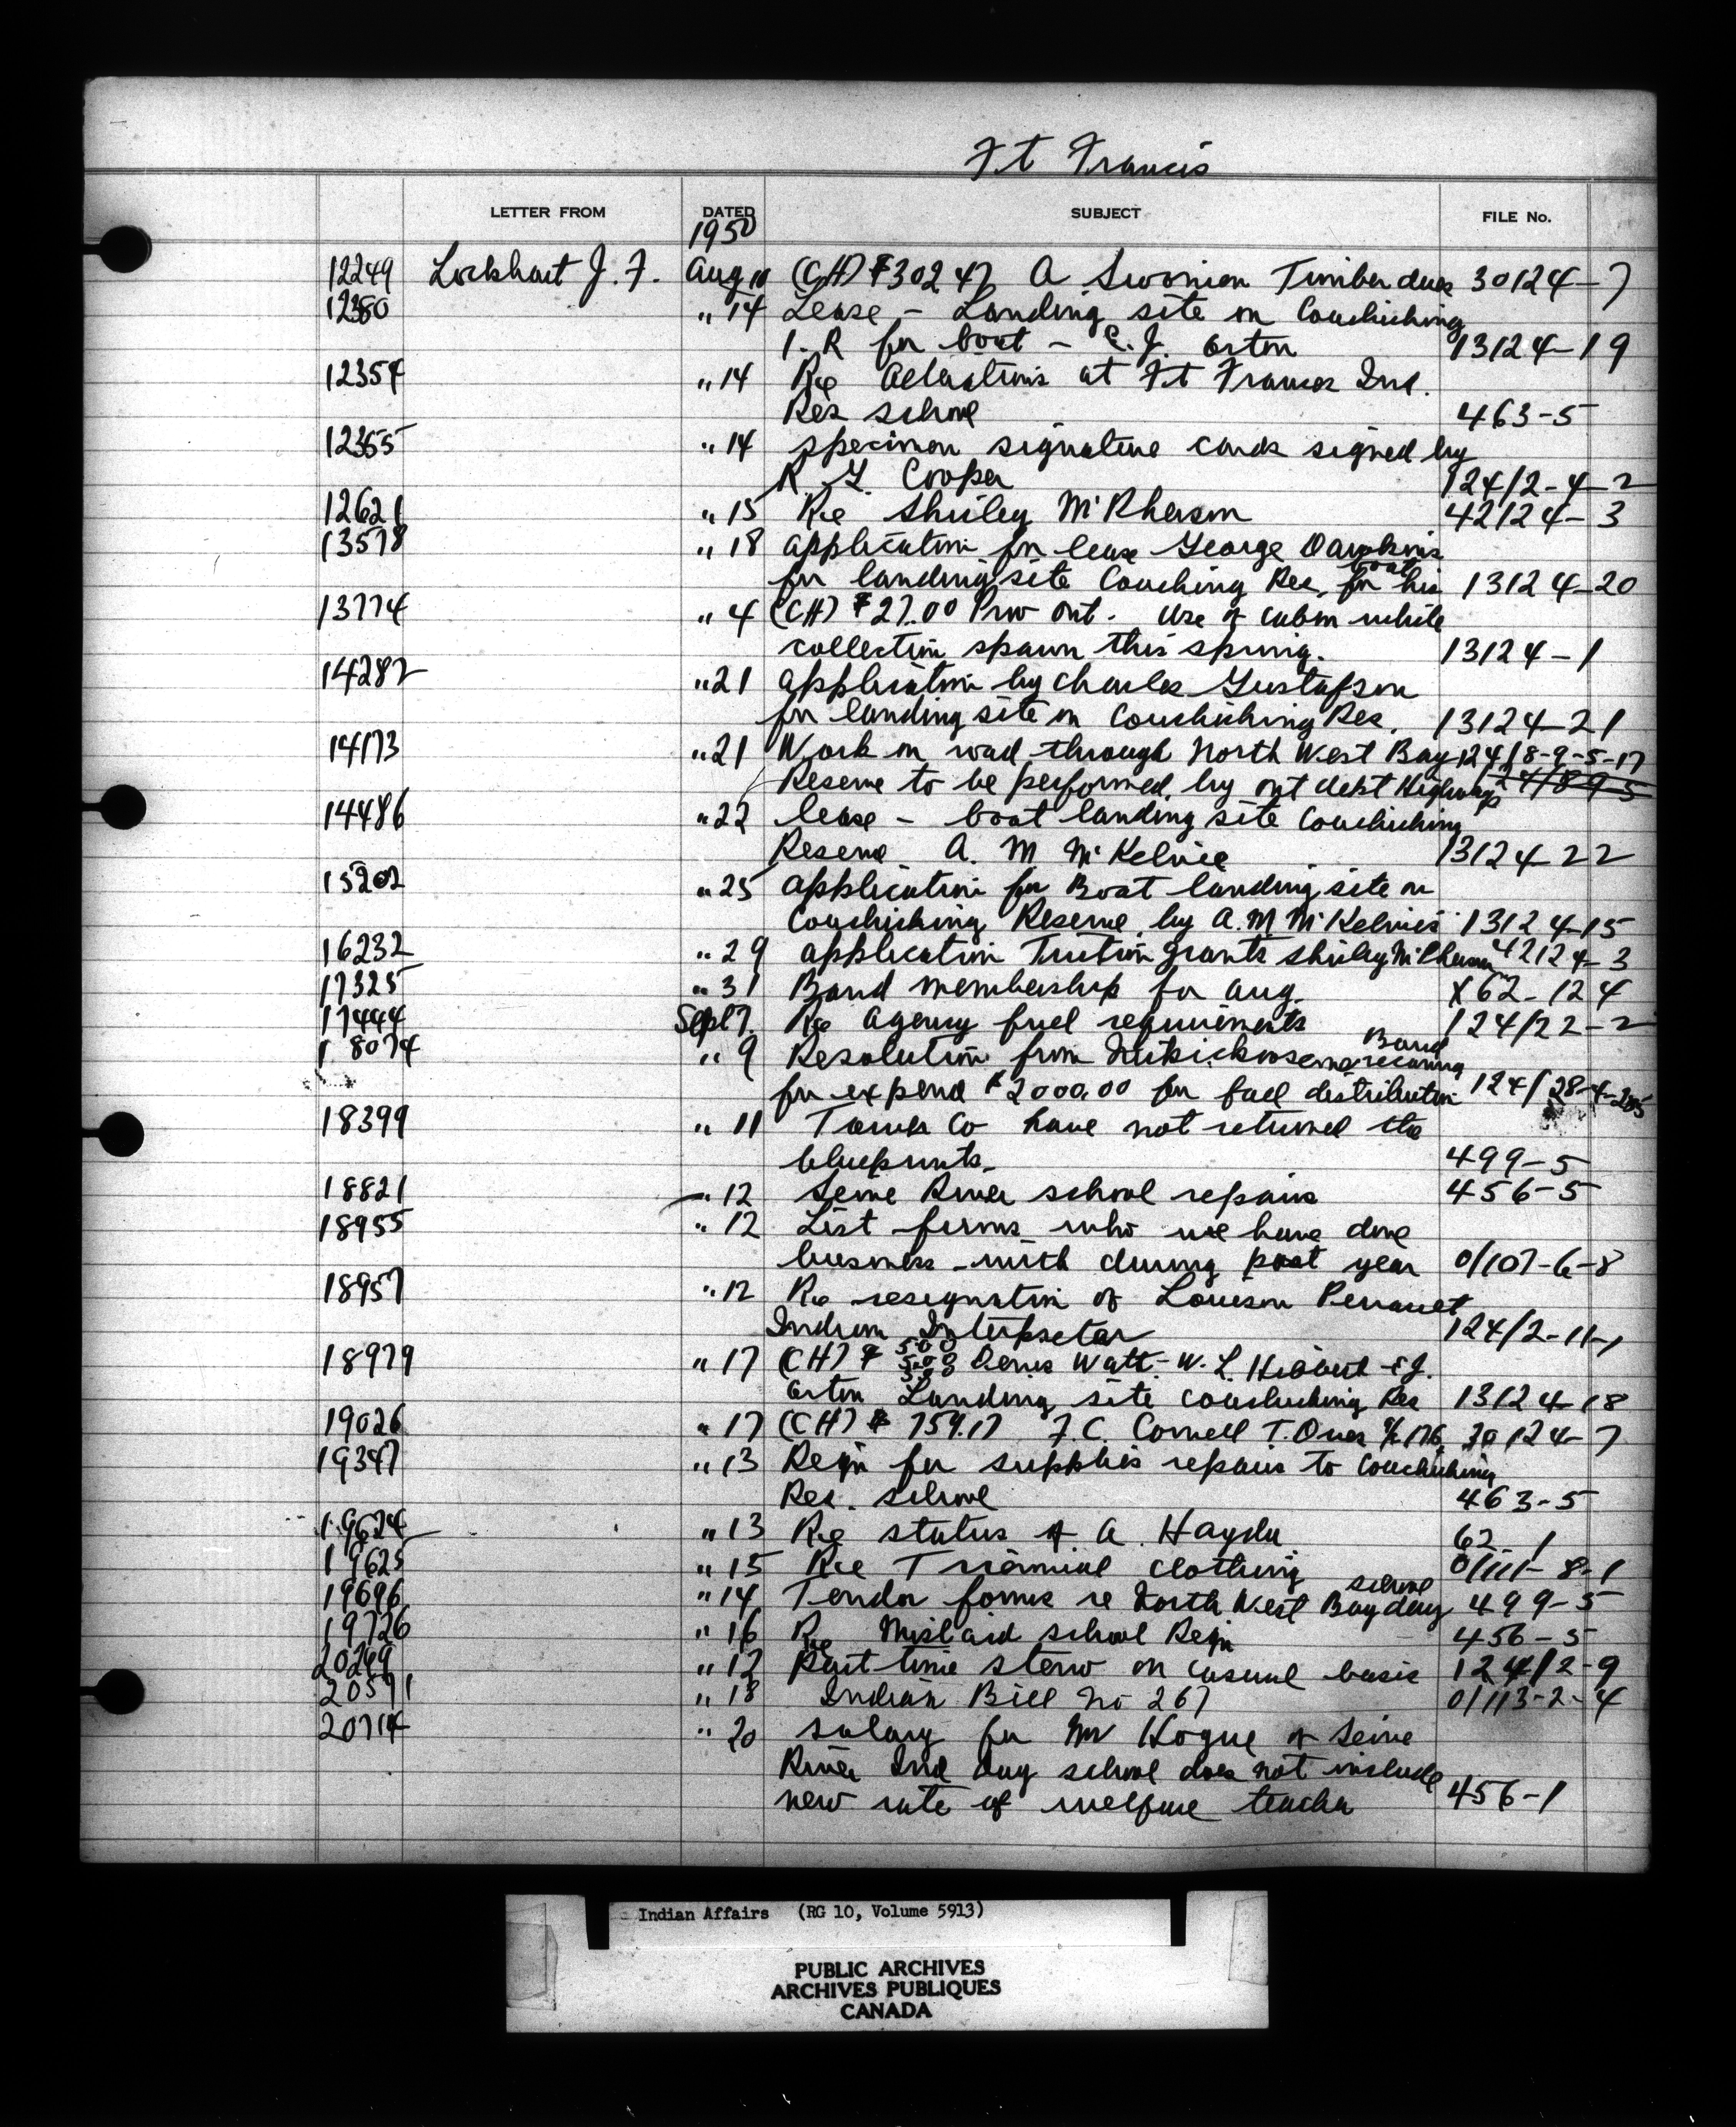 Ft Francis
LETTER FROM DATED SUBJECT FILE No.
1950
12249 Lockhart J. F. Aug 10 (CH) $302 47 A Timber dues 30124-7
12380 " 14 Lease - Landing site on Couchiching
I. R for boat - E. J. Orton 13124-19
12354 " 14 Re at Ft Frances Ind.
Res school 463-5
12355 " 14 specimen signature cards signed by
R. Y. Cooper 124/2-4-2
12621 " 15 Re Shirley McPherson 42124-3
13578 " 18 application for lease George
boat
for landing site Couching Res. for his 13124-20
13774 " 4 (CH) $27.00 Prov Ont. Use of cabin while
collection spawn this spring. 13124-1
14282 " 21 application by Charles Gustafson
for landing site on Couchiching Res. 13124-21
14173 " 21 Work on road through North West Bay 124/8-9-5-17
Reserve to be performed by ont dept Highways 124/8-9-5
14486 " 22 lease - boat landing site Couchiching
Reserve A. M. McKelvie 13124-22
15202 " 25 application for Boat landing site on
Couchiching Reserve by A. M. McKelvies 13124-15
16232 " 29 application Tuition grants Shirley McPherson 42124-3
17325 " 31 Band membership for Aug. X62-124
17444 Sept 7. Re Agency fuel requirements 124/22-2
Band
18074 " 9 Resolution from
for expend $2000.00 for fuel distribution 124/28-4-
18399 " 11 Co have not returned the
blueprints. 499-5
18821 " 12 Seine River school repairs 456-5
18955 " 12 List firms who we have done
business with during past year 0/107-6-8
18957 " 12 Re resignation of Louison Perrault
Indian Interpretar 124/2-11-1
5.00
18979 " 17 (CH) $ 5.00 Denis Watt - W. L. Hibbert - E J.
5.00
Orton Landing site couchiching Res 13124-18
19026 " 17 (CH) $ 759.17 F. C. Cornell T. Dues 30124-7
19347 " 13 Reqn for supplies repairs to Couchiching
Res. school 463-5
19624 " 13 Re status of A. Hayda 62-1
19625 " 15 Re Triennial clothing 0/111-8-1
school
19696 " 14 Tender forms re North West Bay day 499-5
19726 " 16 Re Mislaid school Reqn 456-5
20269 " 12 Part-time steno on casual basis 124/2-9
20591 " 18 Indian Bill No 267 0/113-2-4
20714 " 20 salary for Mr Hogue of Seine
River Ind day school does not include
new rate of welfare teacher 456-1
Indian Affairs (RG 10, Volume 5913)
PUBLIC ARCHIVES
ARCHIVES PUBLIQUES
CANADA